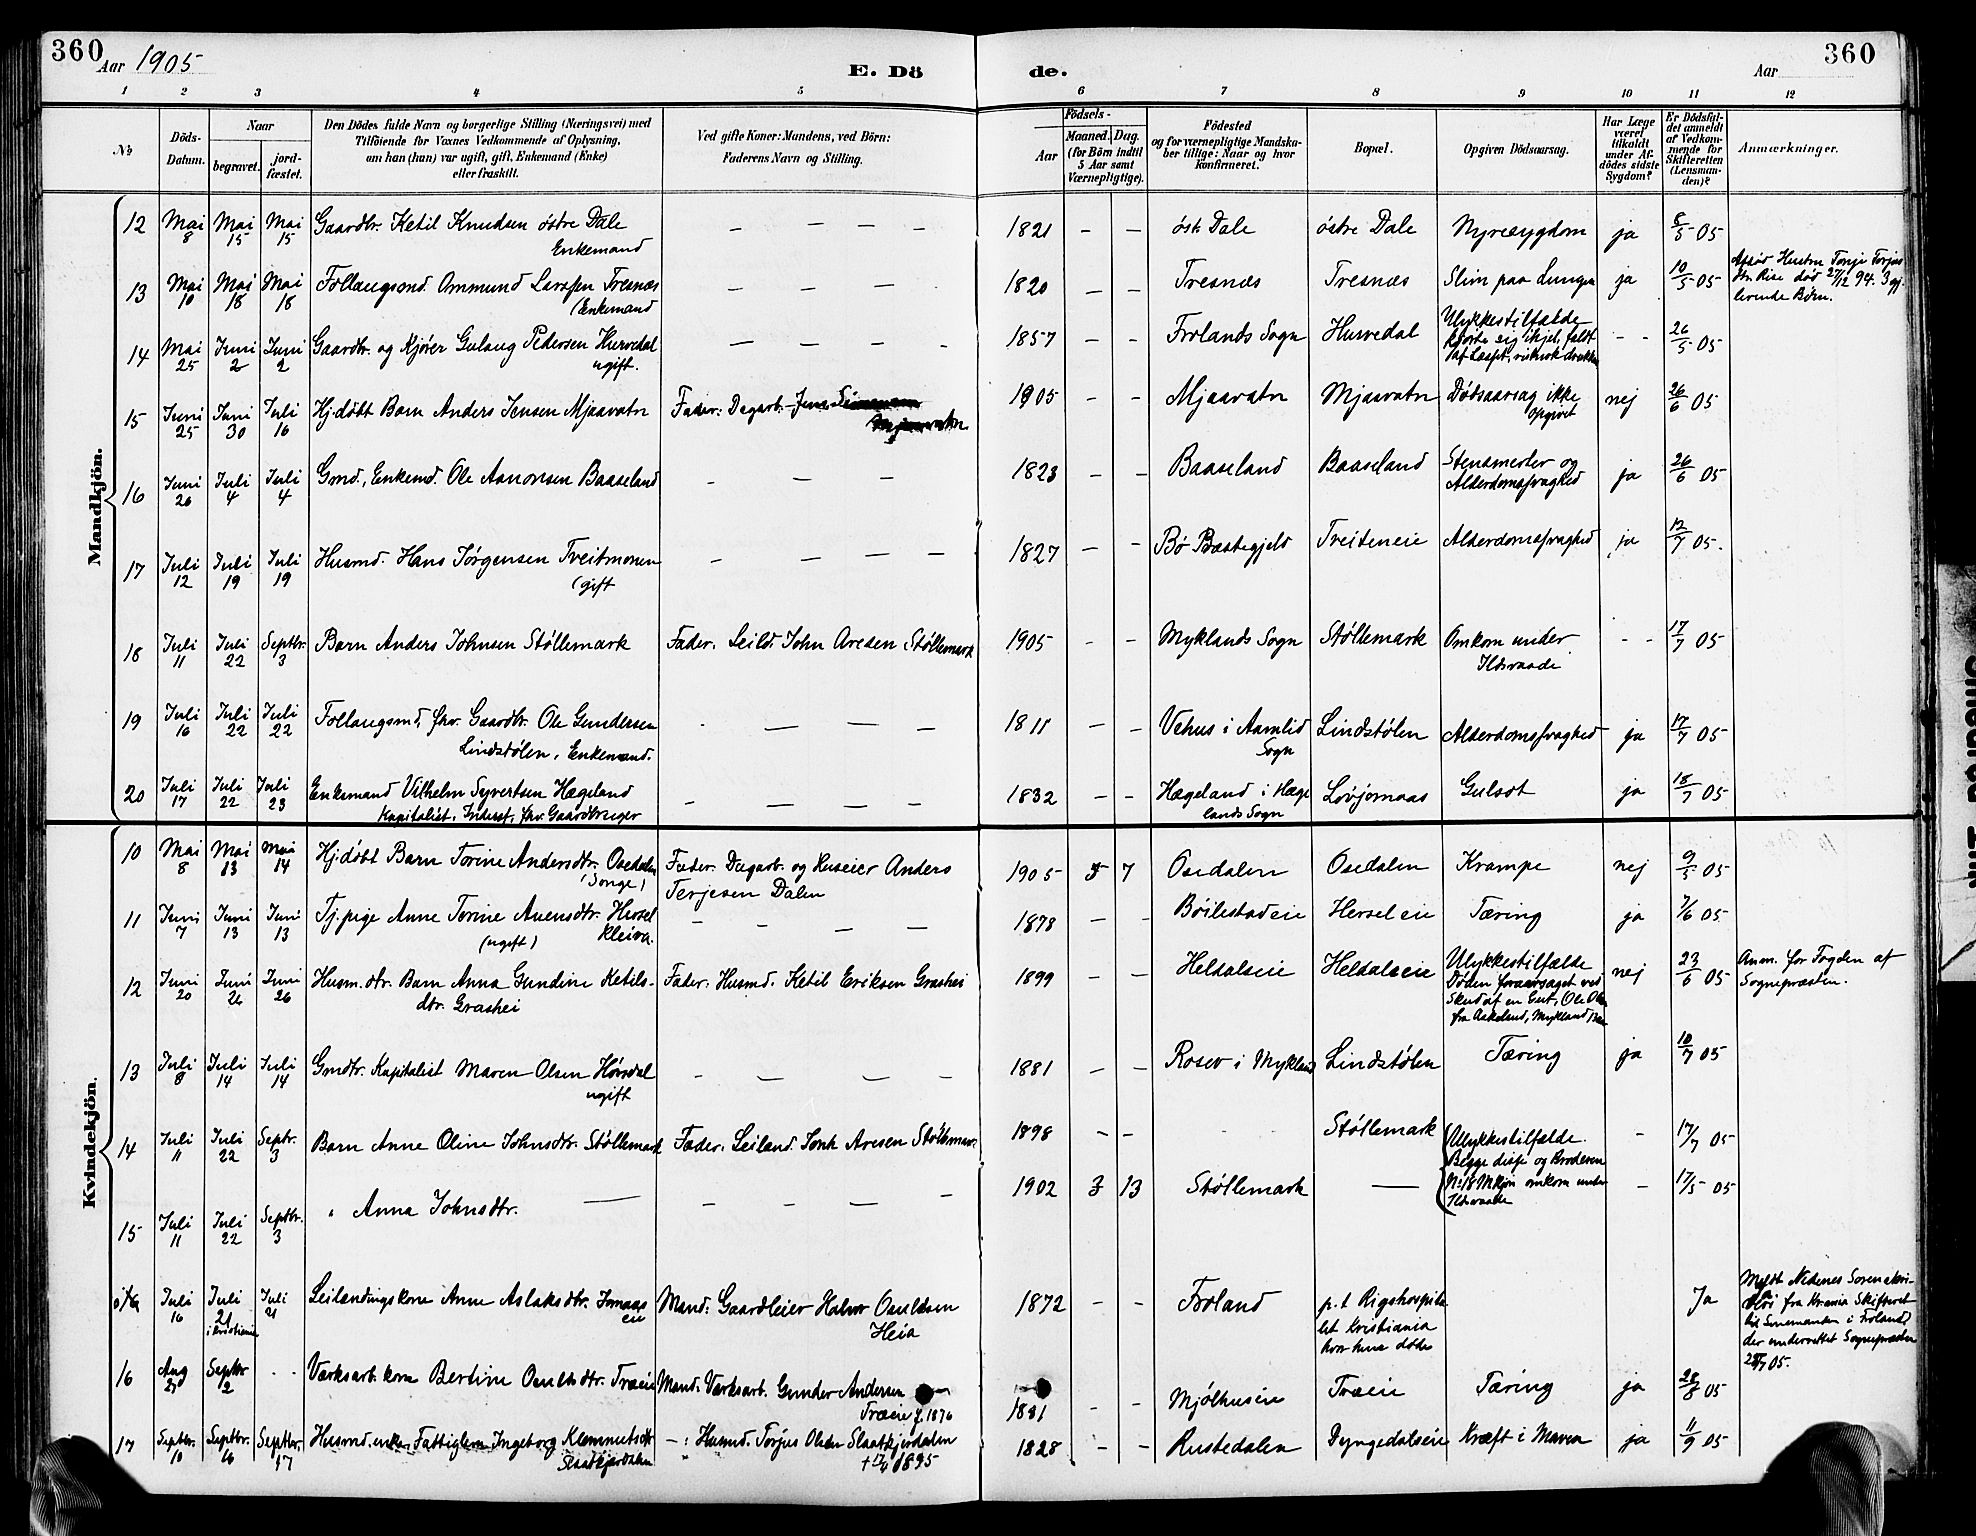 360
Aar 1905
E. Dö
de.
Aar
360
1 2 3 4 5 6 7 8 9 10 11 12
No
Döds-Datum.
Naar
begravet.
jord-fæstet.
Den Dödes fulde Navn og borgerlige Stilling (Næringsvei) med
Tilföiende for Voxnes Vedkommende af Oplysning,
om han (hun) var ugift, gift, Enkemand (Enke)
eller fraskilt.
Ved gifte Koner: Mandens, ved Børn:
Faderens Navn og Stilling.
Födsels-
Aar
Maaned. Dag.
(for Börn indtil
5 Aar samt
Værnepligtige).
Födested
og for værnepligtige Mandska-
ber tillige: Naar og hvor
konfirmeret.
Bopæl.
Opgiven Dödsaarsag.
Har Læge
været
tilkaldt
under Af-
dödes sidste
Sygdom?
Er Dödsfal-
det anmeldt
af Vedkom-
mende for
Skifteretten
(Lensman-
den)?
Anmærkninger.
Mandkjön.
12 Mai 8 Mai 15 Mai 15 Gaardbr. Ketil Knudsen østre Dale — — — — 1821 — — øst. Dale østre Dale Nyresygdom ja 8/5 05
Enkemand
13 Mai 10 Mai 18 Mai 18 Follaugsmd. Ommund Larssen Tresnæs — — — 1820 — — Tresnæs Tresnæs Slim paa Lungen ja 10/5 05
(Enkemand
Hustru Tonje
Rise død 27/12 94. 3 gj.
levende Børn.
14 Mai 25 Juni 2 Juni 2 Gaardbr. og Kjører Gulaug Pedersen Hurvedal — — — - 1857 — — Frolands Sogn Hurvedal Ulykkestilfælde - - 26/5 05
ugift.
sig ihjel, faldt
15 Juni 25 Juni 30 Juli 16 Hj.døbt Barn Anders Jensen Mjaavatn Fader: Dagarb. Jens 1905 — — Mjaavatn Mjaavatn Dødsaarsag ikke nej 26/6 05
opgivet
16 Juni 26 Juli 4 Juli 4 Gmd., Enkemd. Ole Aanonsen Baaseland - — — 1823 — — Baaseland Baaseland Stensmerter og ja 26/6 05
Alderdomssvaghed
17 Juli 12 Juli 19 Juli 19 Husmd. Hans Jørgensen Treitmonen — — — — 1827 — — Bø Præstegjeld Treiteneie Alderdomssvaghed ja 12/7 05.
(gift
18 Juli 11 Juli 22 Septbr. 3 Barn Anders Johnsen Støllemark Fader: Leild. John Aresen Støllemark 1905 — — Myklands Sogn Støllemark Omkom under - - 17/7 05
Ildsvaade
19 Juli 16 Juli 22 Juli 22 Follaugsmd, fhv. Gaardbr. Ole Gundersen - — — 1811 — — Vehus i Aamlid Lindstølen Alderdomssvaghed ja 17/7 05
Lindstølen, Enkemand.
Sogn
20 Juli 17 Juli 22 Juli 23 Enkemand Vilhelm Syvertsen Hægeland — — — — 1832 — — Hægeland i Hæge Lovjomaas Gulsot ja 18/7 05
Kapitalist, fhv. Gaardbruger
lands Sogn
Kvindekjön.
10 Mai 8 Mai 13 Mai 14 Hj.døbt Barn Torine Andersdtr. Osedalen Fader: Dagarb. og Huseier Anders 1905 5 7 Osedalen Osedalen Krampe nej 9/5 05
Terjesen Dalen
11 Juni 7 Juni 13 Juni 13 Tj.pige Anne Torine Anensdtr. Hersel — — — — 1878 — — Bøilestadeie Herseleie Tæring ja 7/6 05
(ugift) kleiva.
12 Juni 20 Juni 26 Juni 26 Husm.dtr. Barn Anna Gundine Ketils- Fader: Husmd. Ketil Eriksen Grashei 1899 — — Heldalseie Heldalseie Ulykkestilfælde nej 23/6 05 Anm. for Fogden af
dtr. Grashei
Døden foraarsaget ved
Skud af en Gut, Ole
fra Aakeland, Mykland
Sognepræsten.
13 Juli 8 Juli 14 Juli 14 Gmdtr. Kapitalist Maren Olsen Hørsdal — — — — 1881 — — Rosev i Mykland Lindstølen Tæring ja 10/7 05
ugift
14 Juli 11 Juli 22 Septr. 3 Barn Anne Oline Johnsdtr. Støllemark Fader: Leiland. John Aresen Støllemar. 1898 — — - - Støllemark Ulykkestilfælde. - 17/7 05
Begge disse og Broderen
No 18 Mkjøn omkom under
Ildsvaade
15 Juli 11 Juli 22 Septbr. 3 " Anna Johnsdtr. — — — — - 1902 3 13 Støllemark — - 17/5 05
Juli 16 Juli 21 Juli 21 Leilændingskone Anne Aslaksdtr. Jomaas Mand: Gaardleier Halvor Osuldsen 1872 — — Froland p.t Rigshospita Ja
i Kristiania
eie
Heia
let Kristiania
hvor hun døde
Meldt Nedenes Sorenskri-
fra Kr.ania Skifteret
til Lensmanden i Froland,
der underrettet Sognepræsten
05.
16 Aug 27 Septbr 12 - - Værksarb. kone Bertine Osuldsdtr. Træeie Mand: Værksarb. Gunder Andersen 1881 — — Mjølhuseie Træeie Tæring ja 28/8 05
Træeie f. 1876
17 Septbr. 10 Septbr. 16 Septbr. 17 Husmd.enke Fattiglem Ingeborg Klemmetsdtr —: Husmd. Torjus Olsen Slaatkjerdalen 1828 — — Rustedalen Dyngedalseie Kræft i Maven ja 11/9 05
Slaatkjerdalen
1895